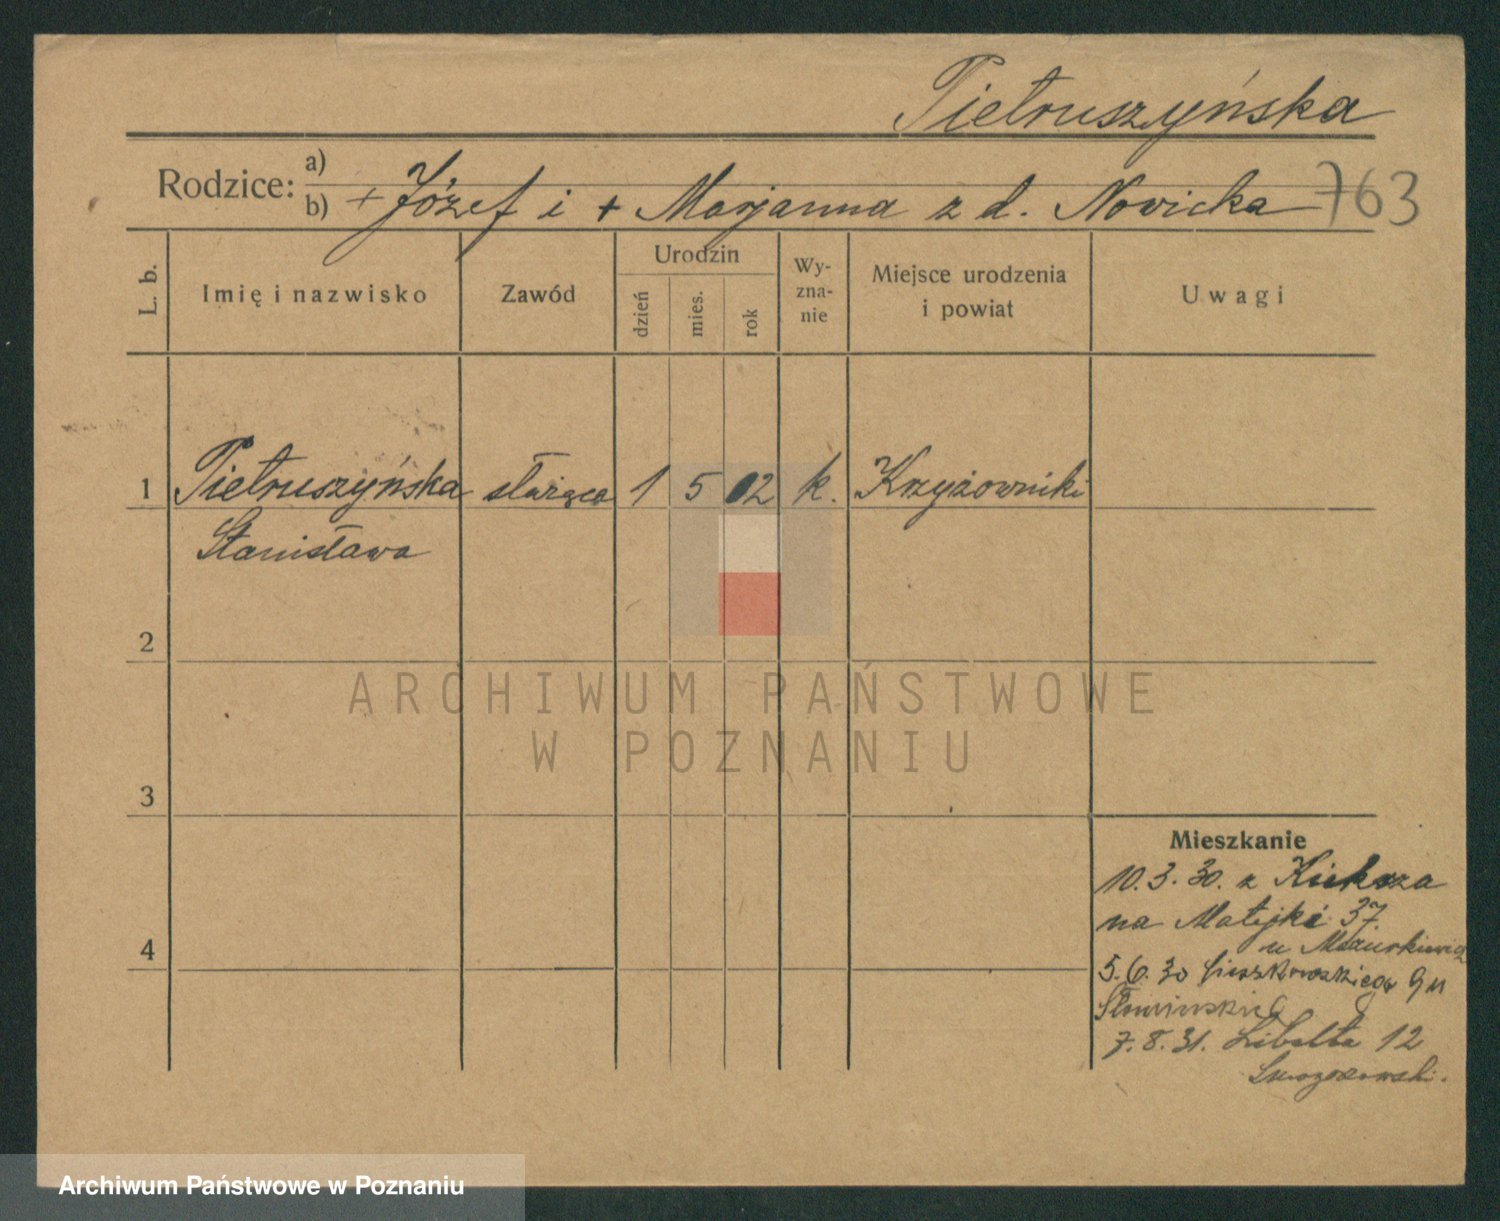 Pietruszyńska
Rodzice: a)
b) + Józef i + Marjanna z d. Nowicka 763
L. b.
Imię i nazwisko
Zawód
Urodzin
dzień
mies.
rok
Wy-
zna-
nie
Miejsce urodzenia
i powiat
Uwagi
1 Pietruszyńska służąca 1 5 02 k. Krzyżowniki
Stanisława
2
ARCHIWUM PAŃSTWOWE
W POZNANIU
3
Mieszkanie
10.3.30. z Kiekrza
na Matejki 37
u Mazurkiewicz
4
5.6.30 Cieszkowskiego 9 u
Słowińskie
7.8.31. Libelta 12
Archiwum Państwowe w Poznaniu